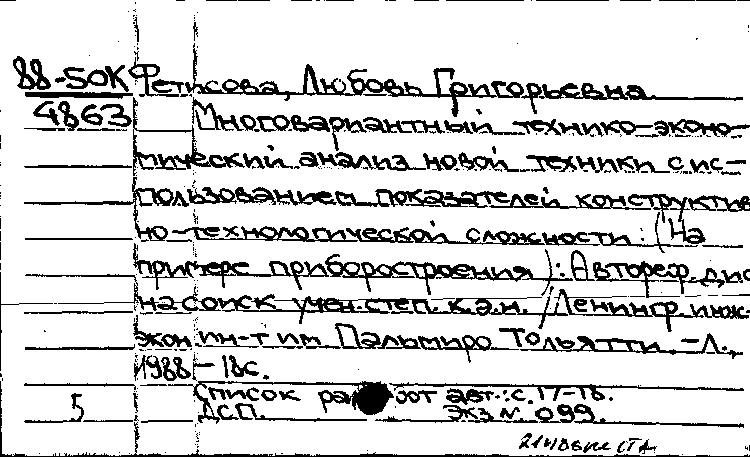 88-50К Фетисова, Любовь Григорьевна
4863 Многовариантный технико-эконо-
мический анализ новой техники с ис-
пользованием показателей конструктив
но-технологической сложности: (На
примере приборостроения): Автореф. дис
на соиск учен. степ. к.э.н. / Ленингр. инж.-
экон ин-т им Пальмиро Тольятти. - Л.,
1988 - 18с.
Список работ авт.: с. 17-18.
5 ДСП. Экз № 099.